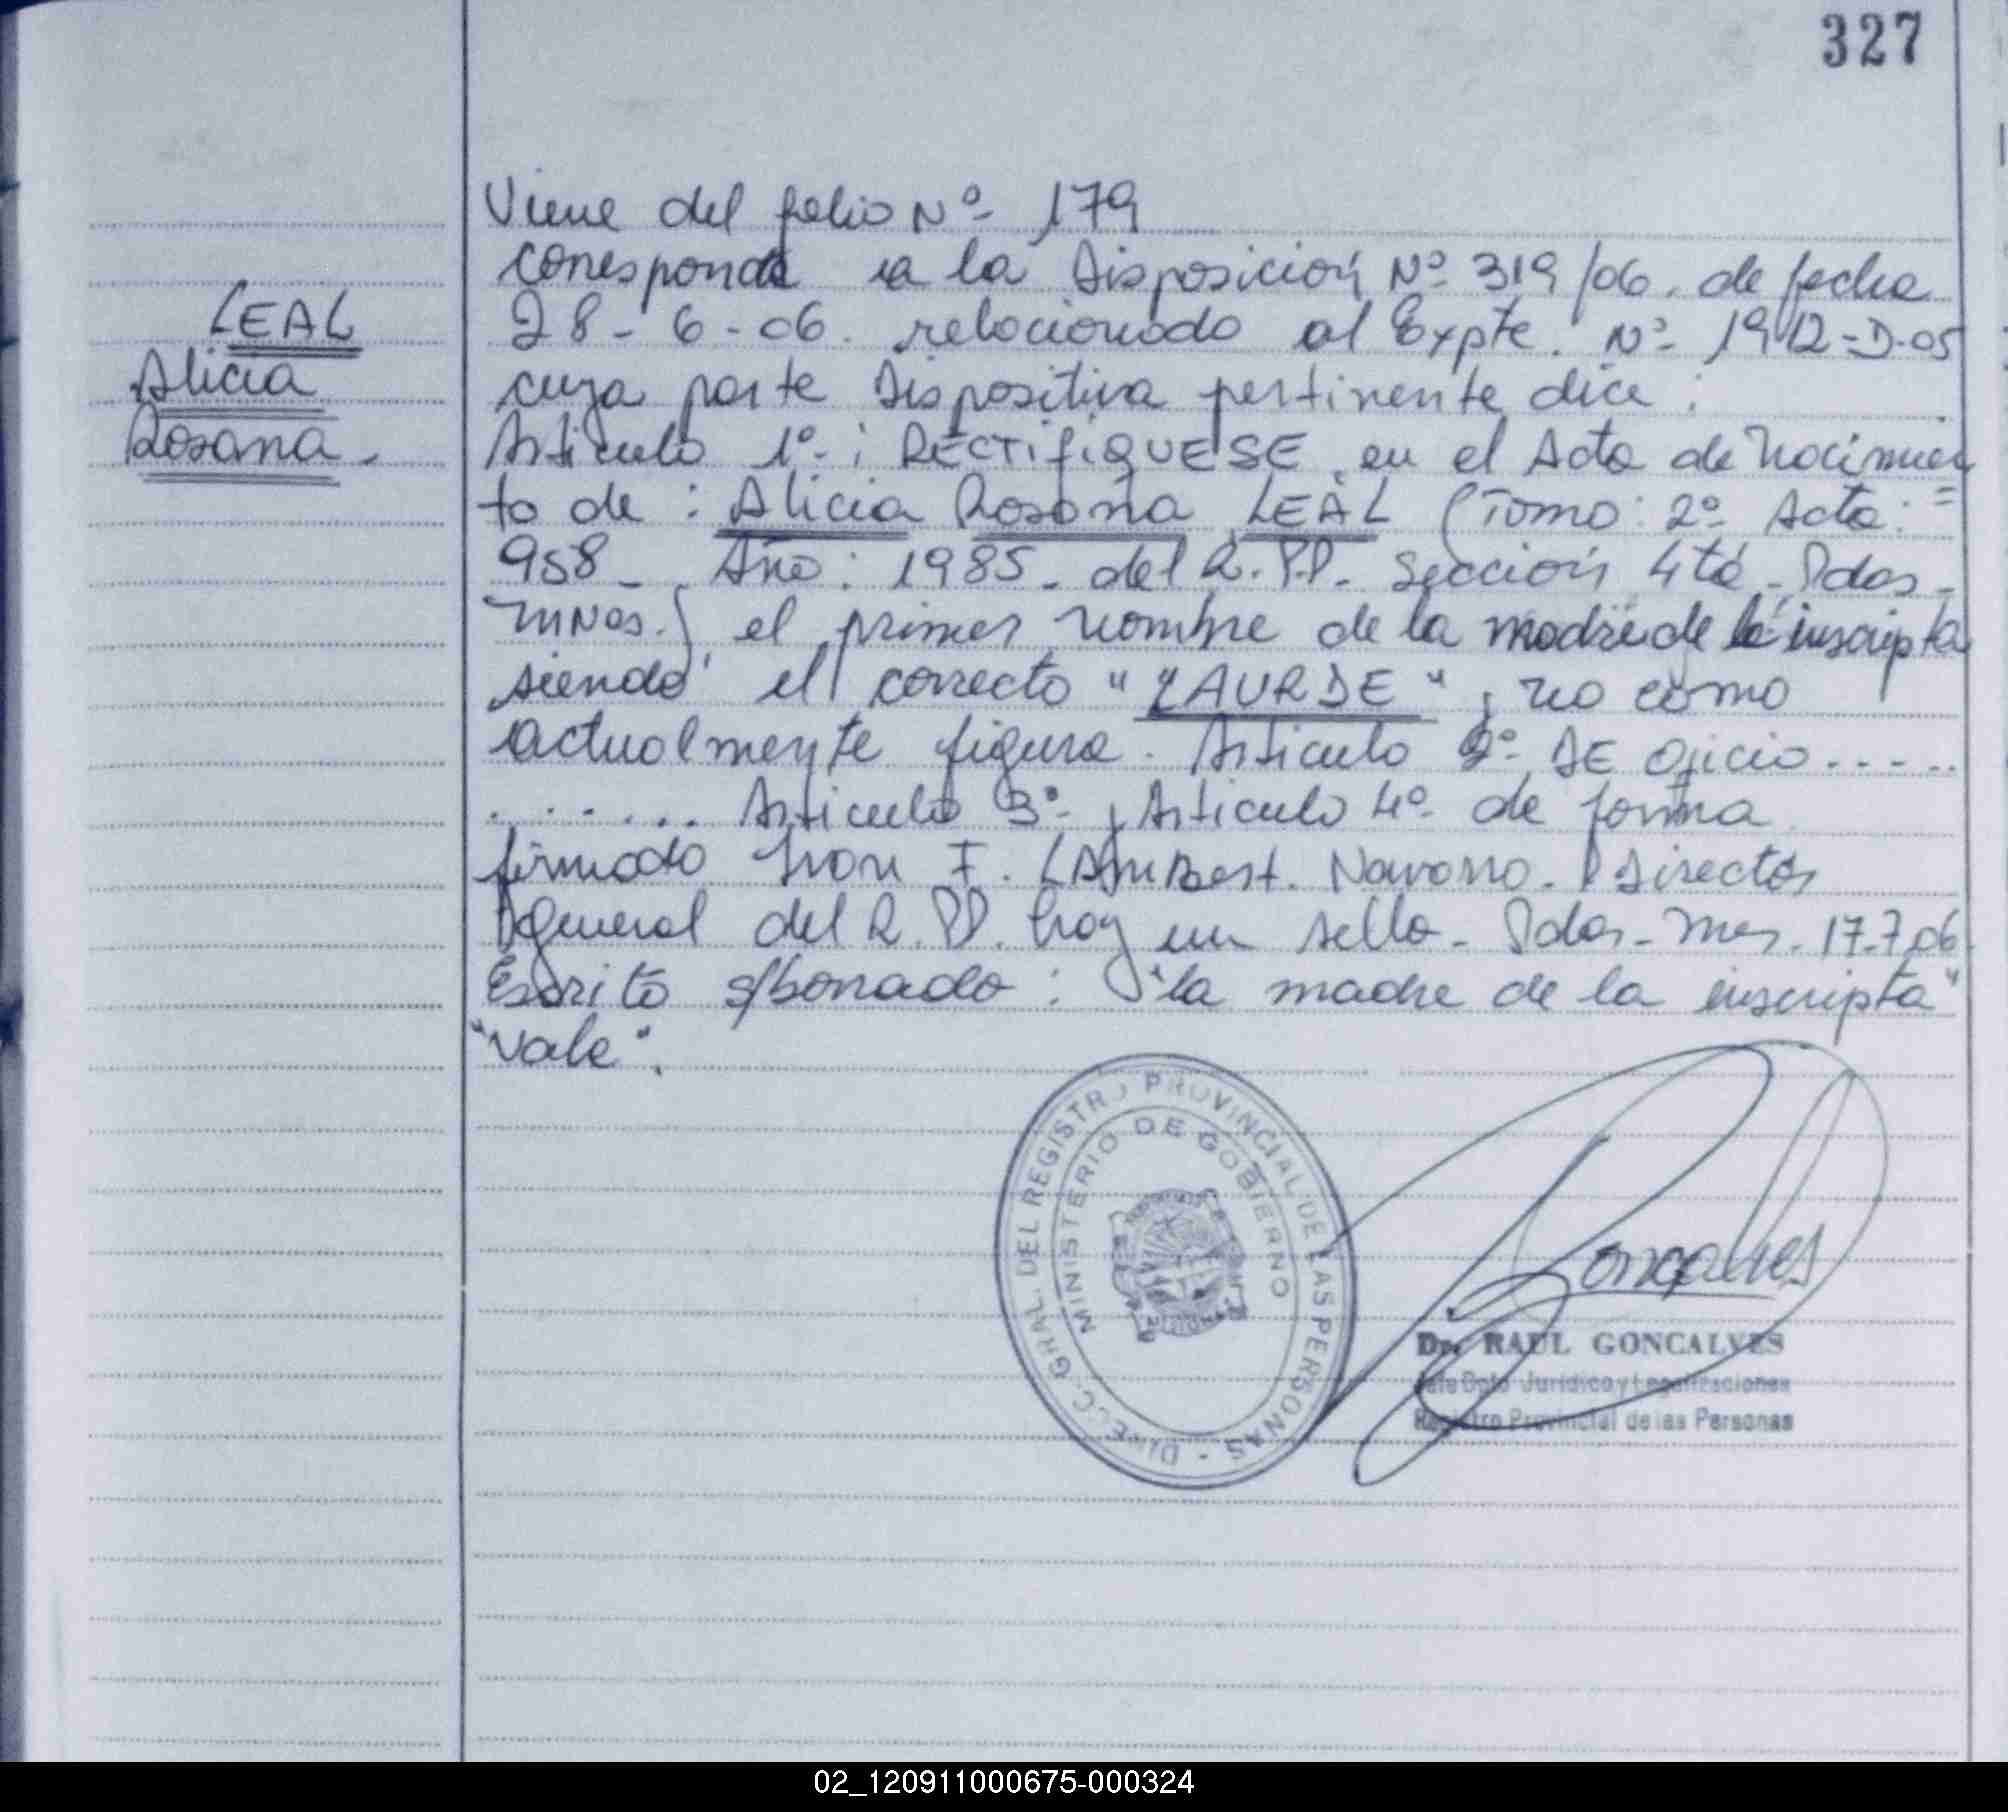 327
LEAL
Alicia
Rosana.
Viene del folio Nº 179
corresponde a la Disposición Nº 319/06. de fecha
28-6-06. relacionado al Expte. Nº 1912-D-05
cuya parte Dispositiva pertinente dice:
Articulo 1º: RECTIFIQUESE, en el Acta de Nacimien
to de: Alicia Rosana LEAL (Tomo: 2º Acta: =
958_ Año: 1985_ del R.P.P. Sección 4tá_ Pdas_
mnes.) el primer nombre de la madre de la inscripta
siendo el correcto "LAURDE" y no como
actualmente figura. Articulo 2º DE Oficio.....
...... Articulo 3º y Articulo 4º de forma
firmado Ivon F. LAmBert. Navarro. Director
general del R.P.P. hay un sello_ Pdas_ mnes. 17-7-06
Escrito s/borrado: "la madre de la inscripta"
"Vale".
DIRECC. GRAL. DEL REGISTRO PROVINCIAL DE LAS PERSONAS -
MINISTERIO DE GOBIERNO
Goncalves
Dr. RAUL GONCALVES
Jefe Dpto Jurídico y Legalizaciones
Registro Provincial de las Personas
02_120911000675-000324